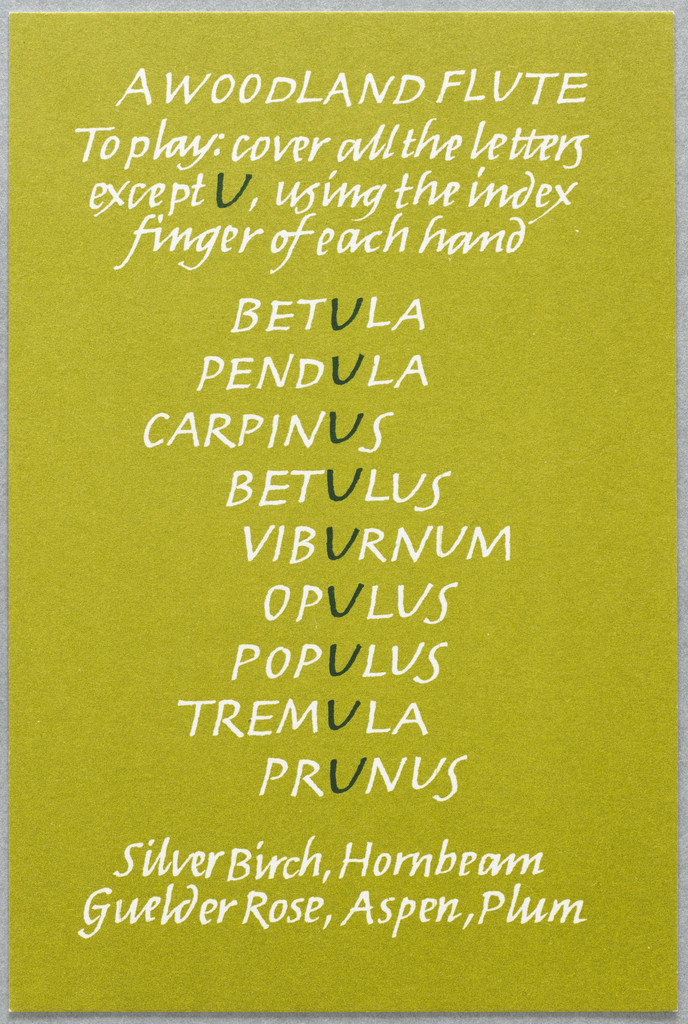 A WOODLAND FLUTE
To play: cover all the letters
except U, using the index
finger of each hand
BETULA
PENDULA
CARPINUS
BETULUS
VIBURNUM
OPULUS
POPULUS
TREMULA
PRUNUS
Silver Birch, Hornbeam
Guelder Rose, Aspen, Plum